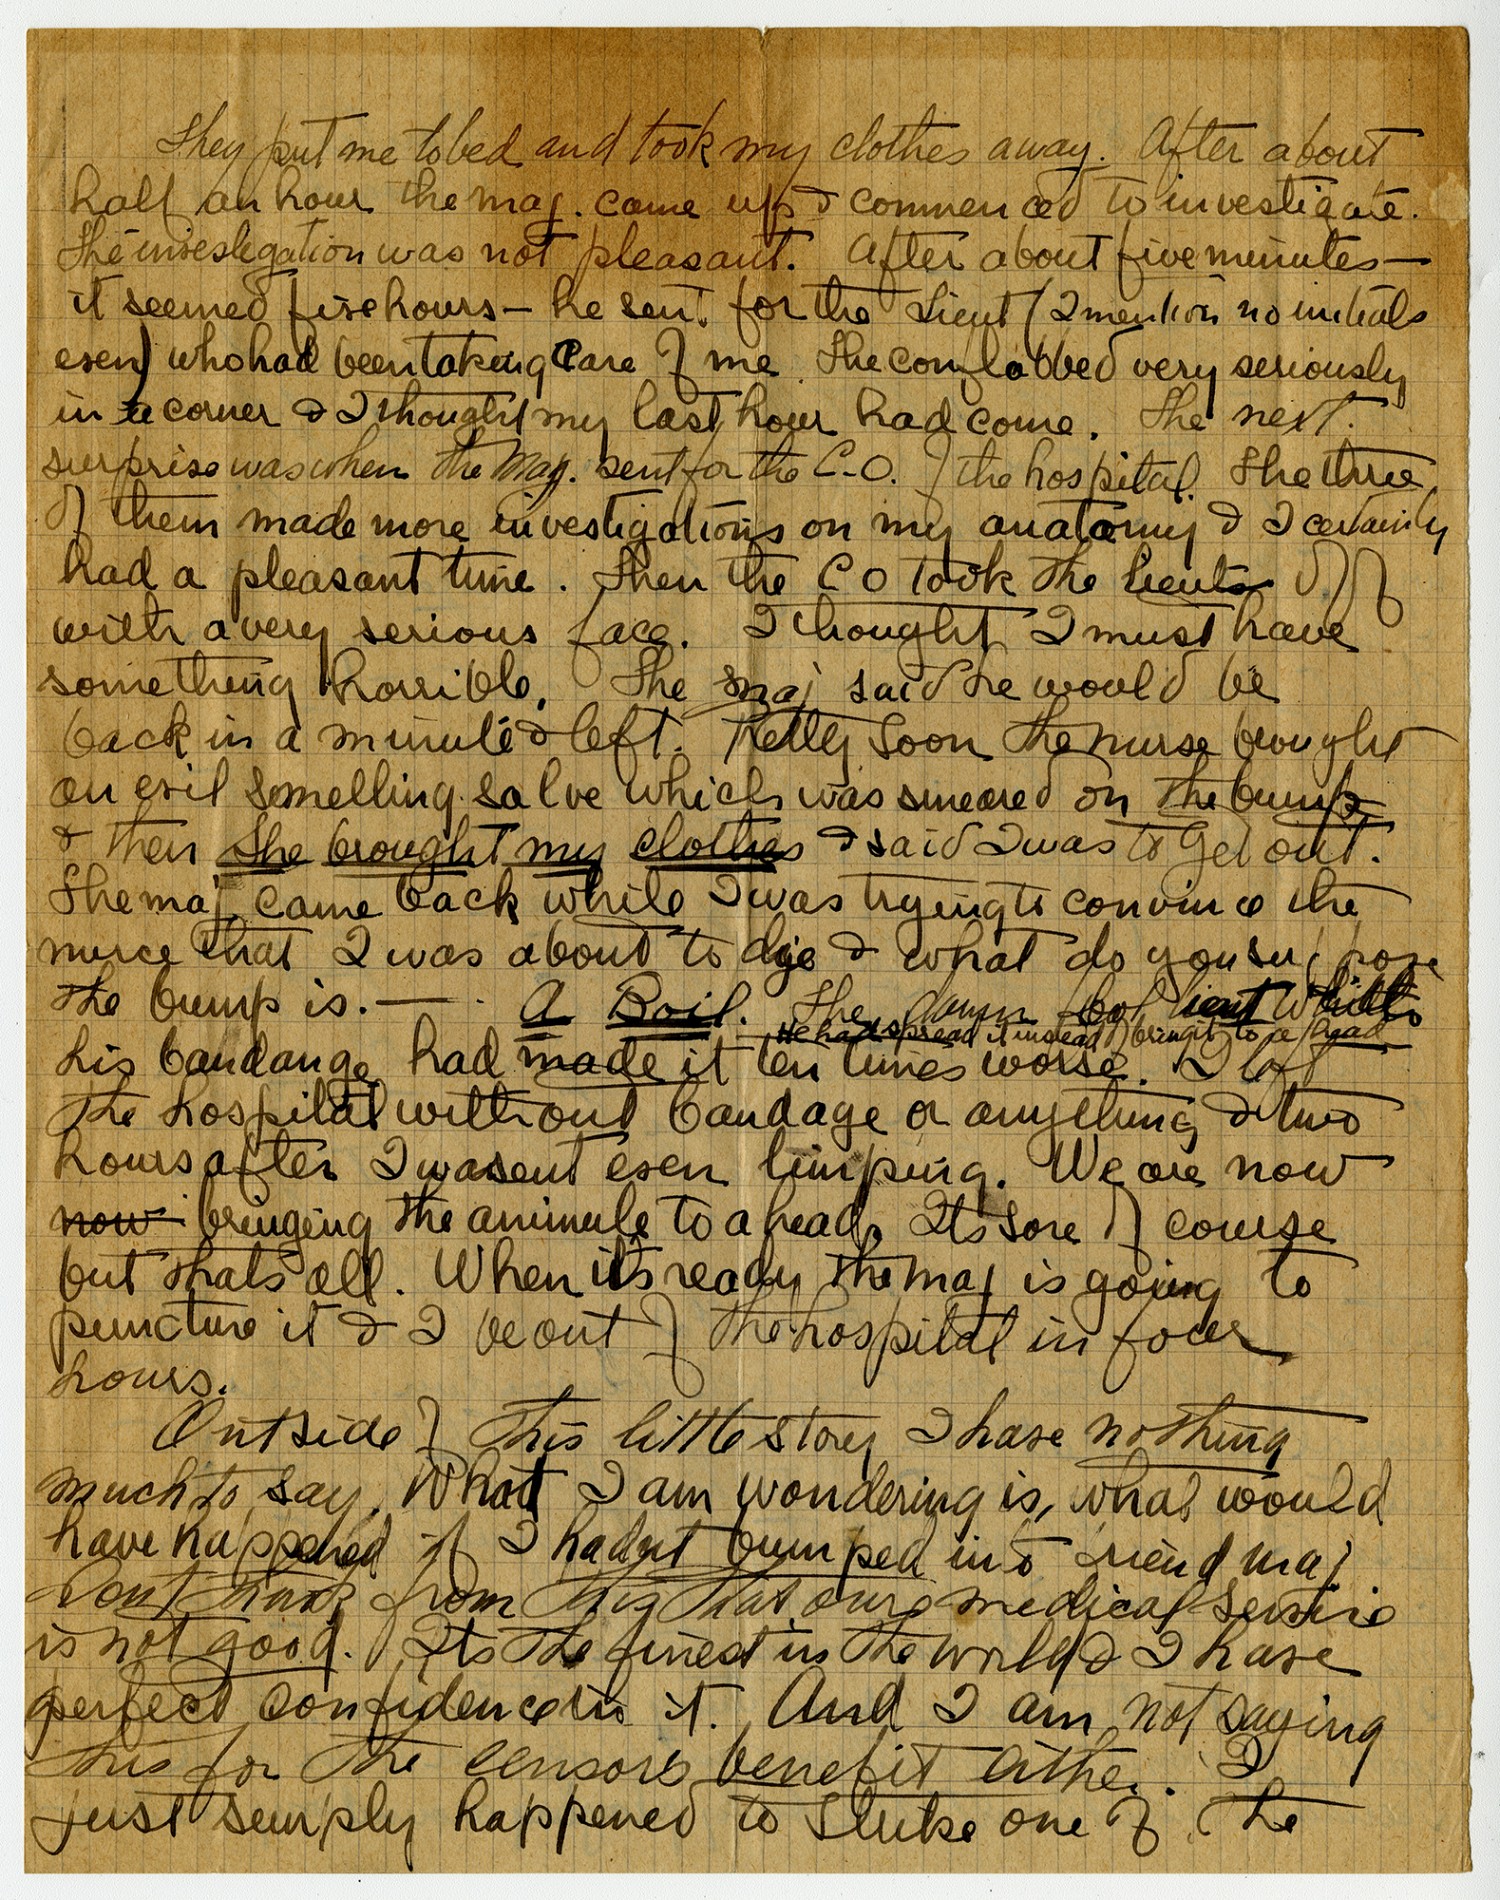 They put me to bed and took my clothes away. After about
half an hour the maj. came up & commenced to investigate.
The investegation was not pleasant. After about five minutes—
it seemed five hours— he sent for the Lieut (I mention no initials
even) who had been taking care of me. The conflabbed very seriously
in a corner & I thought my last hour had come. The next
surprise was when the Maj. sent for the C-O. of the hospital. The three
of them made more investigations on my anatomy & I certainly
had a pleasant time. Then the C O took the Lieut off
with a very serious face. I thought I must have
something horrible. The maj said he would be
back in a minute & left. Pretty soon the nurse brought
an evil smelling salve which was smeared on the bump
& then she brought my clothes & said I was to get out.
The maj. came back while I was trying to convince the
nurse that I was about to die & what do you suppose
the bump is. — A Boil. The damn fool lieut with
He had spread it instead of bringing it to a head
his bandange had made it ten times worse. I left
the hospital without bandage or anything & two
hours after I wasent even limping. We are now
now bringing the animule to a head. Its sore of course
but thats all. When it's ready the maj is going to
puncture it & I be out of the hospital in four
hours.
Outside of this little story I have nothing
much to say. What I am wondering is, what would
have happened if I hadnt bumped into friend maj
Dont think from this that our medical service
is not good. Its the finest in the world & I have
perfect confidence in it. And I am not saying
this for the censors benefit either. I
just simply happened to strike one of the